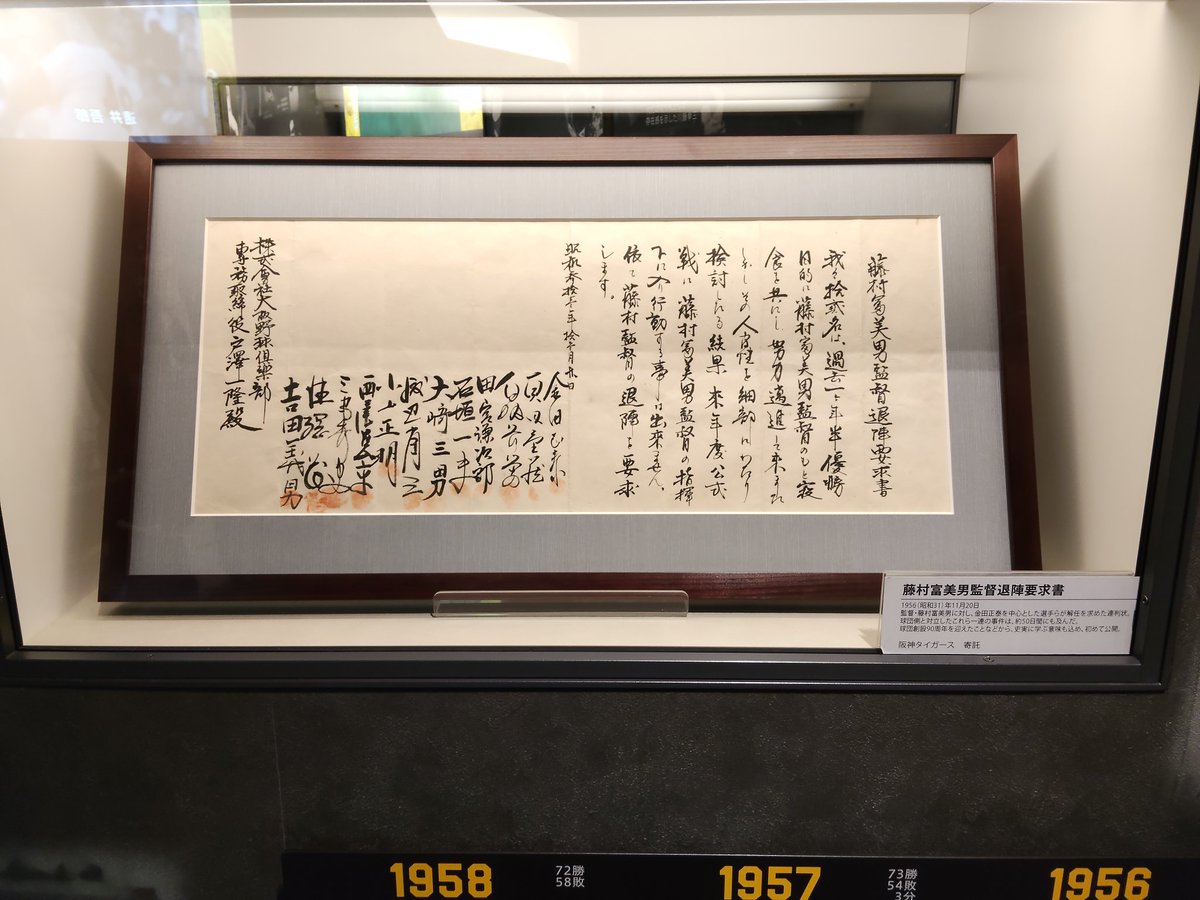 藤村富美男監督退陣要求書
我々拾弐名は、過去一ヶ年半優勝
目的に藤村富美男監督のもと寝
食を共にし努力邁進して来ました
しかしその人間性を細部にわたり
検討したる結果 来年度公式
戦に藤村富美男監督の指揮
下に入り行動する事は出来ません、
依て藤村監督の退陣を要求
します。
昭和参拾壱年拾一月廿日
金田正泰
真田重蔵
白坂長栄
田宮謙次郎
石垣一夫
大崎三男
渡辺省三
小山正明
吉田義男
株式会社大阪野球倶楽部
専務取締役戸澤一隆殿
藤村富美男監督退陣要求書
1956(昭和31)年11月20日
監督・藤村富美男に対し、金田正泰を中心とした選手らが解任を求めた連判状。
球団側と対立したこれら一連の事件は、約50日間にも及んだ。
球団創設90周年を迎えたことなどから、史実に学ぶ意味も込め、初めて公開。
阪神タイガース 寄託
1958
72勝
58敗
1957
73勝
54敗
3分
1956